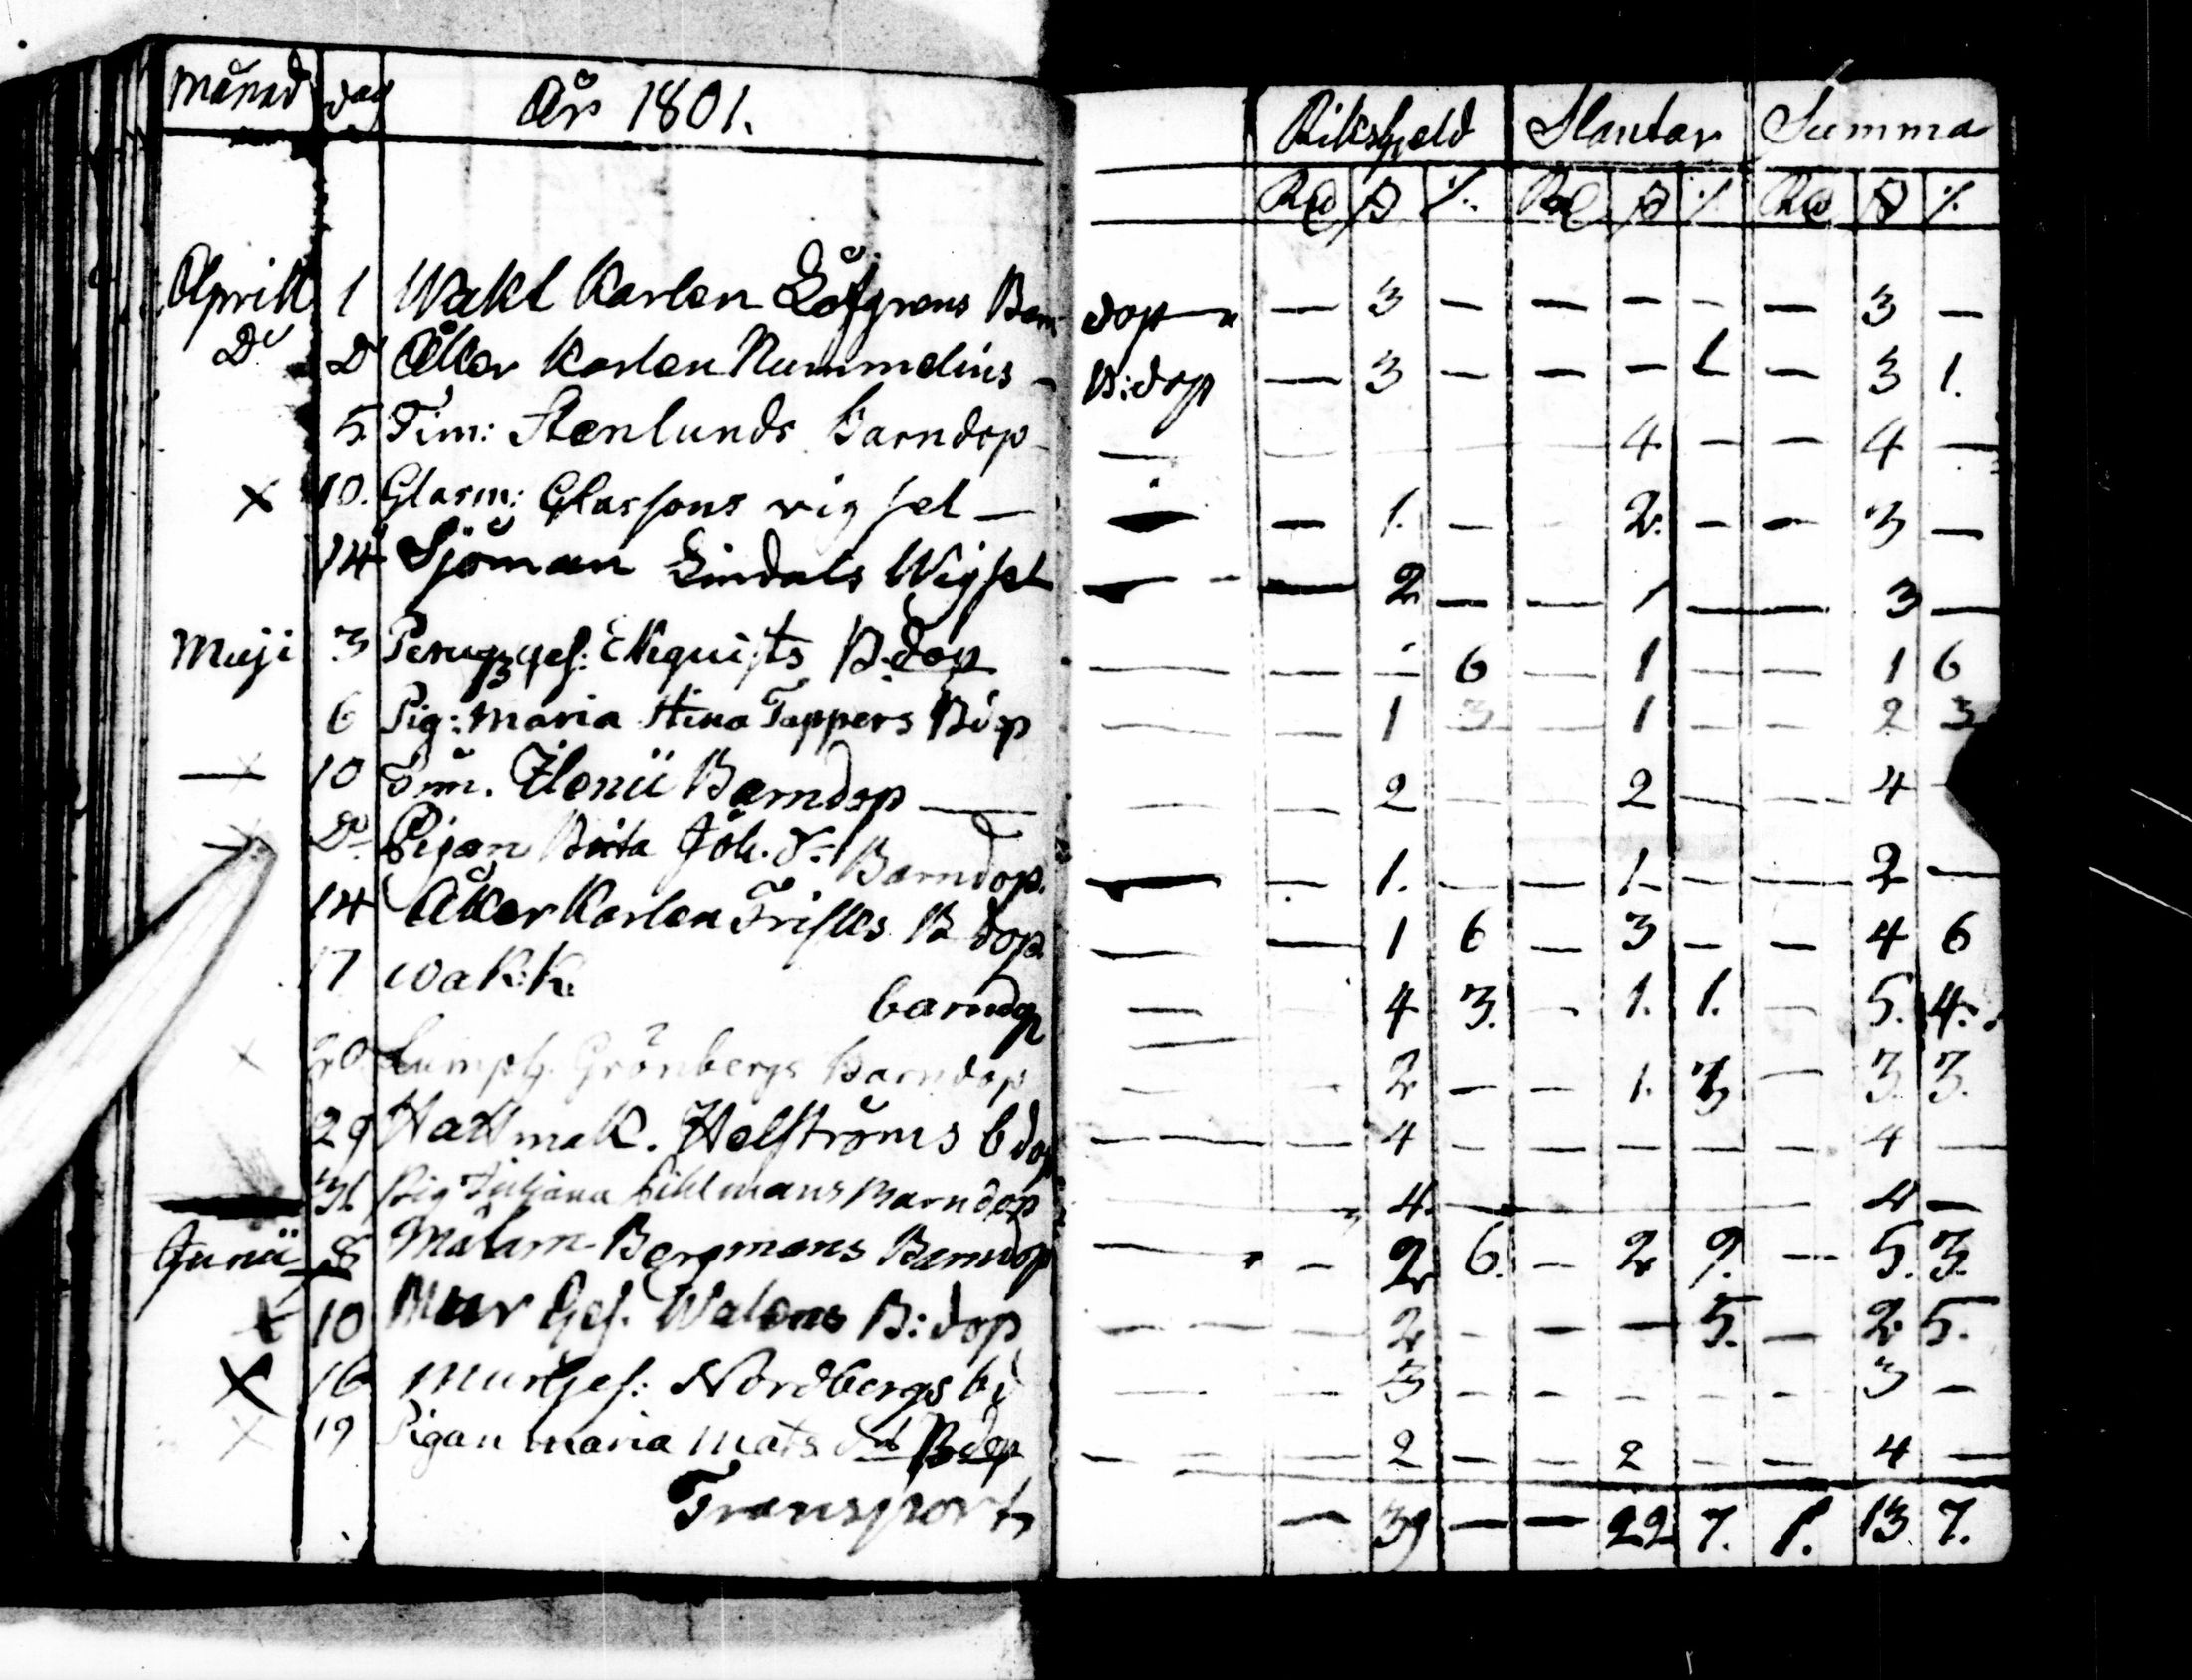 Månad dag År 1801. Riksgeld Slantar Summa
Rd ß /. Rd ß /. Rd ß /.
Aprill 1 Wakt Karlen Löfgrens Barn dop — — 3 — — — — — 3 —
Do Do Åker Karlen Nummelins — B:dop — 3 — — — 1 — 3 1.
5. Tim: Stenlunds Barndop — — 4 — — 4 —
x 10. Glasm: Clasons vigsel — — — 1. — 2. — — 3 —
14 Sjöman Lindals Wigsel — — 2 — — 1 — — 3 —
Maji 3 Perugs gef: Ekquists B.dop — — — 6 — 1 — — 1 6
6 Pig: Maria Stina Tappers B:dop — — 1 3 — 1 — — 2 3
— x 10 Tim. Ilenii Barndop — — — 2 — — 2 — — 4 —
Do Pigan Brita Joh. dr Barndop. — — 1. — — 1 — — 2 —
14 Åker Karlen Trisks B dop. — — 1 6 — 3 — — 4 6
17 wak:k: barndop — 4 3. — 1. 1. — 5. 4.
x 20 Lumpf. Grönbergs Barndop — — 2 — — 1. 3 — 3. 3.
29 Hattmak. Helströms bdop — — 4 — — — — — 4 —
31. Pig Juliana Lihlmans Barndop — 4. — — 4 —
Junii 8 Målarm. Bergmans Barndop — — 2 6. — 2 9. — 5. 3.
x 10 Mur Gef. Walens B:dop — — 2 — — — 5. — 2 5.
x 16 Murgef: Nordbergs bd — — 3 — — — — — 3 —
x 19 Pigan Maria Mats dr B.dop — — — 2 — — 2 — — 4 —
Transport — 39 — — 22 7. 1. 13 7.